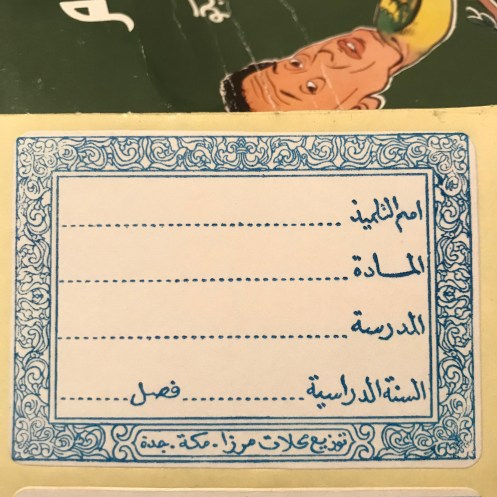 اسم التلميذ
المادة
المدرسة
السنة الدراسية فصل
توزيع محلات مرزا . مكة . جدة